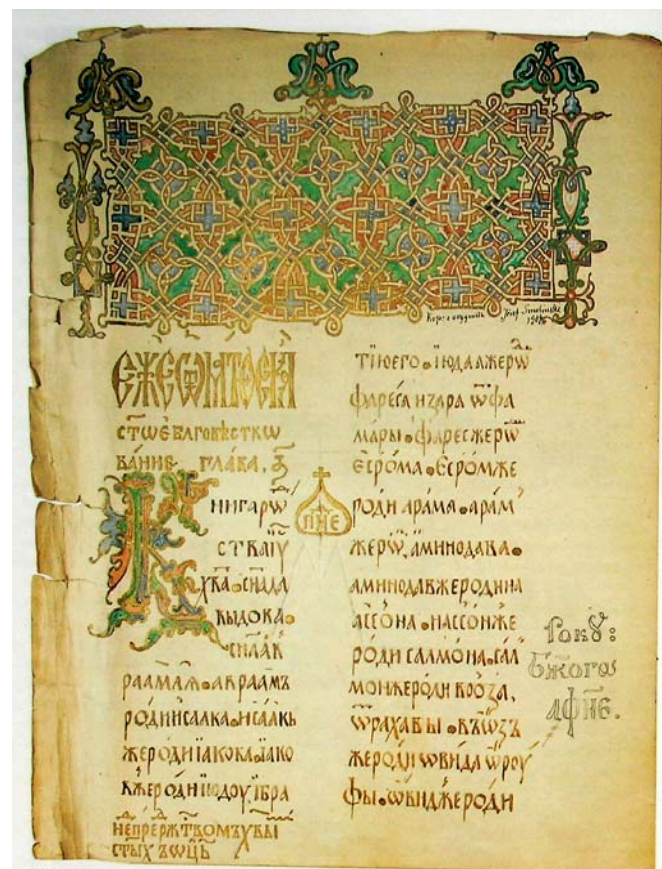 ЄЖЄ Ѿ МАТѲЄѦ
ст҃ѡє благовѣствѡ
ванїє глава, а҃
Книга рѡⷣ
ства іѵ҃
х҃ва. сн҃а да
выдова.
сн҃а ав
раамлѧ. авраамъ
роди исаака. исаакь
же роди їакова. їако
в же роди їюдоу, ї бра
тїю его. їюда же рѡⷣ
фареса и зара ѿ фа
мары. фарес же рѡⷣ
есрома. есром же
роди арама. арам
же рѡⷣ, аминодава.
аминодав же роди на
ассона. нассон же
роди салмона. сал
мон же роди вооза,
ѿ рахавы. въѡзъ
же роди ѡвида ѿ роу
фы. ѡвид же роди
Року:
Бж҃ого
҂аф҃н҃є.